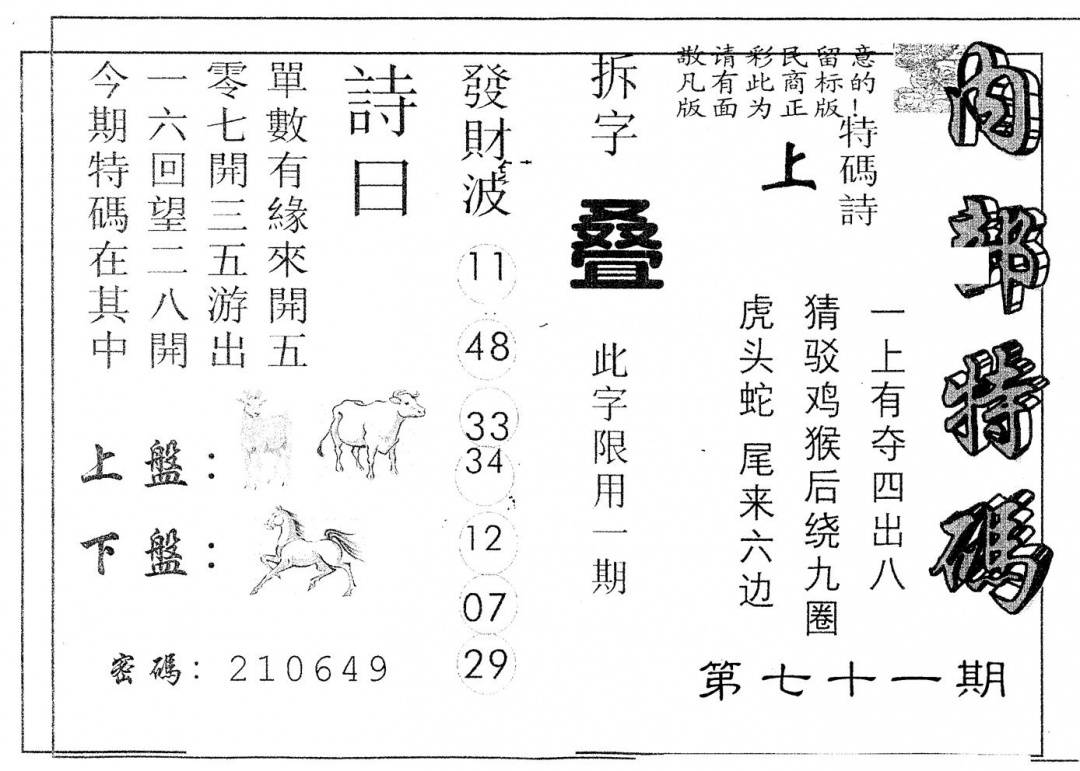 内部特碼
敬请彩民留意
凡有此商标的
版面为正版！
特碼詩
上
一上有夺四出八
猜驳鸡猴后绕九圈
虎头蛇 尾来六边
第七十一期
拆字
叠
此字限用一期
發財波
11
48
33
34
12
07
29
詩曰
單數有緣來開五
零七開三五游出
一六回望二八開
今期特碼在其中
上盤：
下盤：
密碼：210649